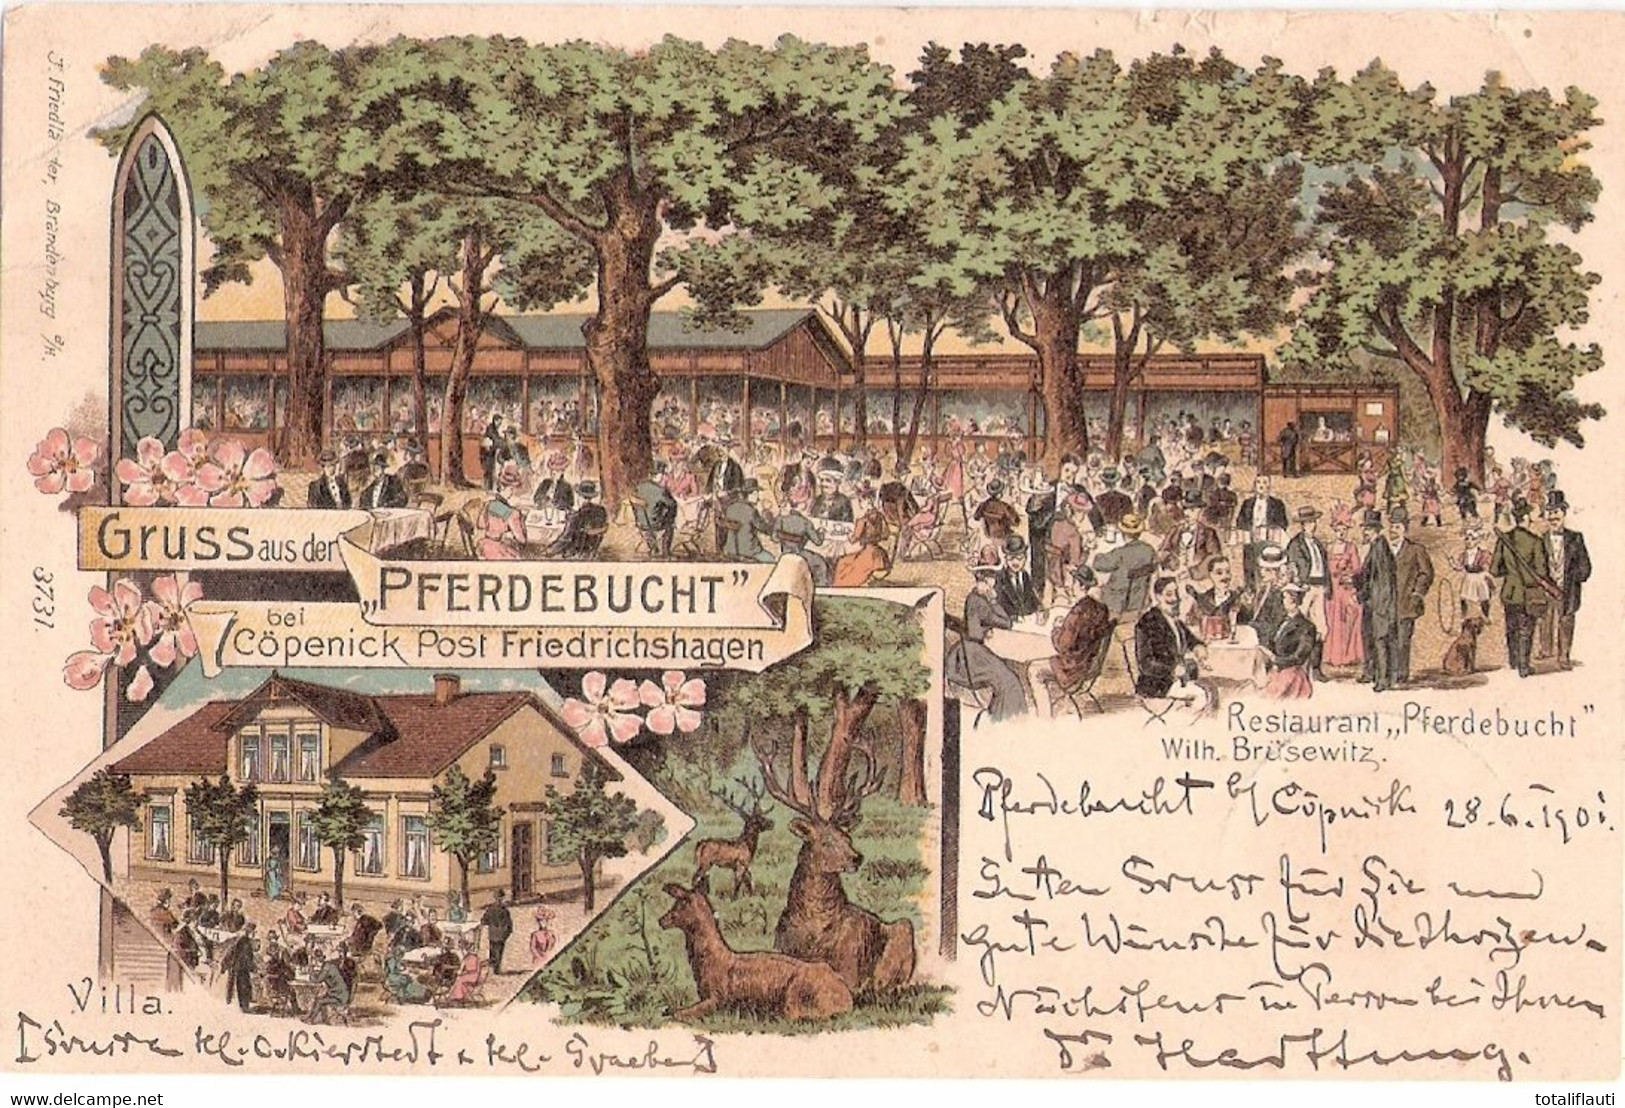 J. Friedländer, Brandenburg a/H.
3731.
GRUSS aus der
„PFERDEBUCHT”
bei
Cöpenick Post Friedrichshagen
Restaurant „Pferdebucht”
Wilh. Brüsewitz.
Villa.
Pferdebucht b/ Cöpenick 28.6.1901.
Guten Gruss für Sie und
gute Wünsche für die
Nächstens in Person bei Ihnen
Dr Harttung.
delcampe.net
totaliflauti